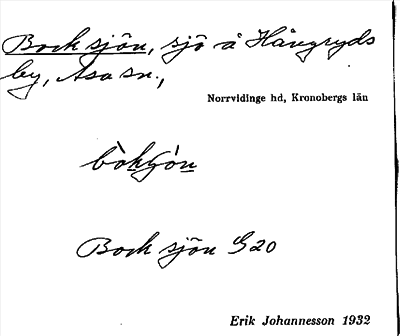 Bocksjön, sjö å Hångryds
by, Asa sn.,
Norrvidinge hd, Kronobergs län
Bocksjön G20
Erik Johannesson 1932